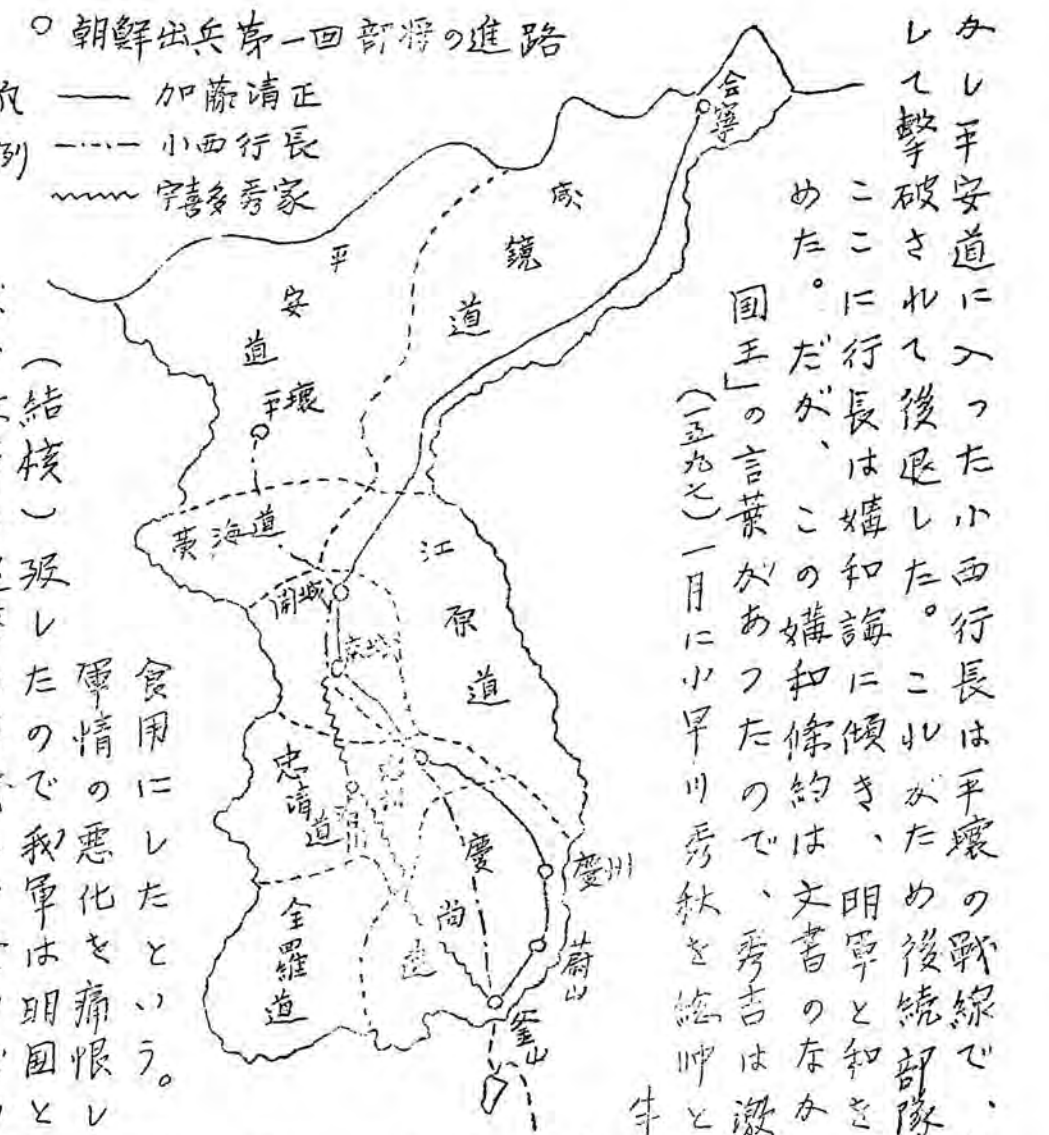 かし平安道に入った小西行長は平壌の戦線で、
して撃破されて後退した。これがため後続部隊
ここに行長は媾和論に傾き、明軍と和を
めた。だが、この媾和條約は文書のなか
国王」の言葉があったので、秀吉は激
(一五九七)一月に小早川秀秋を総帥と
○ 朝鮮出兵第一回部将の進路
加藤清正
小西行長
宇喜多秀家
会寧
咸鏡道
平安道
平壌
黄海道
開城
京城
江原道
忠清道
慶尚道
全羅道
慶州
蔚山
釜山
食用にしたという。
軍情の悪化を痛恨し
(結核)歿したので我軍は明国と